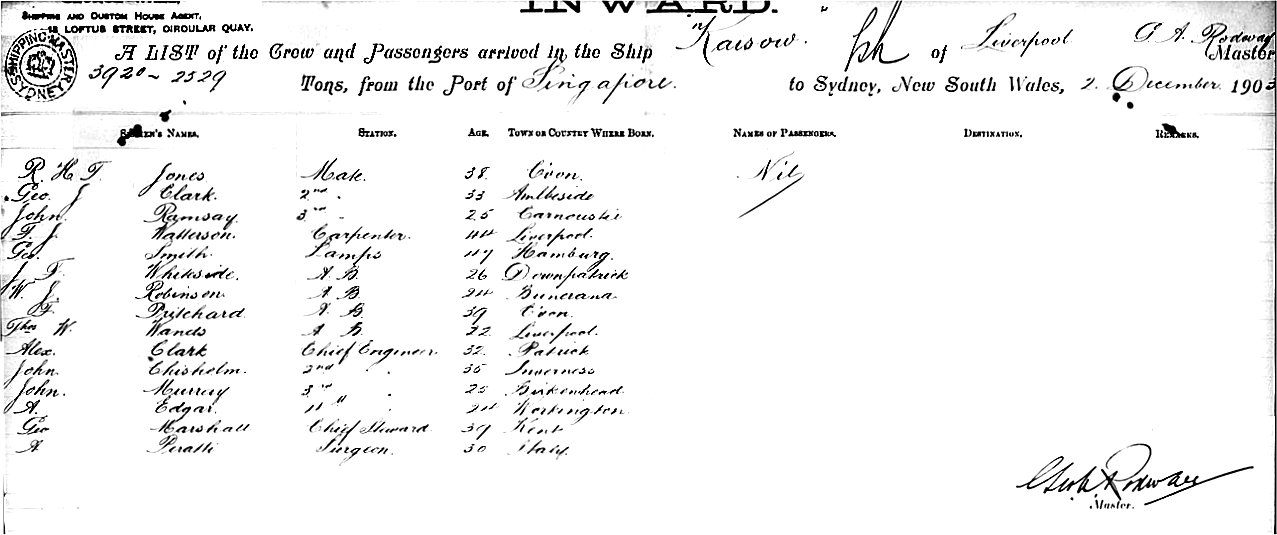 INWARD.
SHIPPING AND CUSTOM HOUSE AGENT,
12 LOFTUS STREET, CIRCULAR QUAY.
SHIPPING MASTER SYDNEY
A LIST of the Crew and Passengers arrived in the Ship Kaisow. of Liverpool G A. Rodway Master
3920 - 2529 Tons, from the Port of Singapore. to Sydney, New South Wales, 2. December 190
SEAMEN'S NAMES. STATION. AGE. TOWN OR COUNTRY WHERE BORN. NAMES OF PASSENGERS. DESTINATION. REMARKS.
R. H. T. Jones Mate. 38. C'von. Nil
Geo. J Clark. 2nd " 33 Ambleside
John. Ramsay. 3rd " 25 Carnoustie
T. J. Watterson. Carpenter. 44 Liverpool.
Geo. Smith. Lamps 47 Hamburg.
J. T. Whiteside. A. B. 26 Downpatrick
W. J. Robinson A. B. 24 Buncrana
Pritchard. A. B. 39 C'von.
Thos W. Wands A. B. 22 Liverpool.
Alex. Clark Chief Engineer 32. Patrick
John. Chisholm. 2nd " " 35 Inverness
John. Murray 3rd " 25 Birkenhead
A. Edgar. 4th " 24 Workington.
Geo Marshall Chief Steward 39 Kent
A. Peratti Surgeon. 30 Italy.
Rodway
Master.